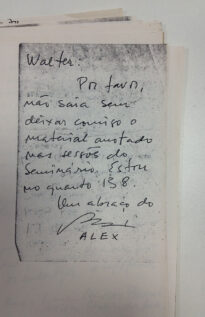 Walter:
Por favor,
não saia sem
deixar comigo o
material anotado
nas sessões do
Seminário. Estou
no quarto 138.
Um abraço do
ALEX